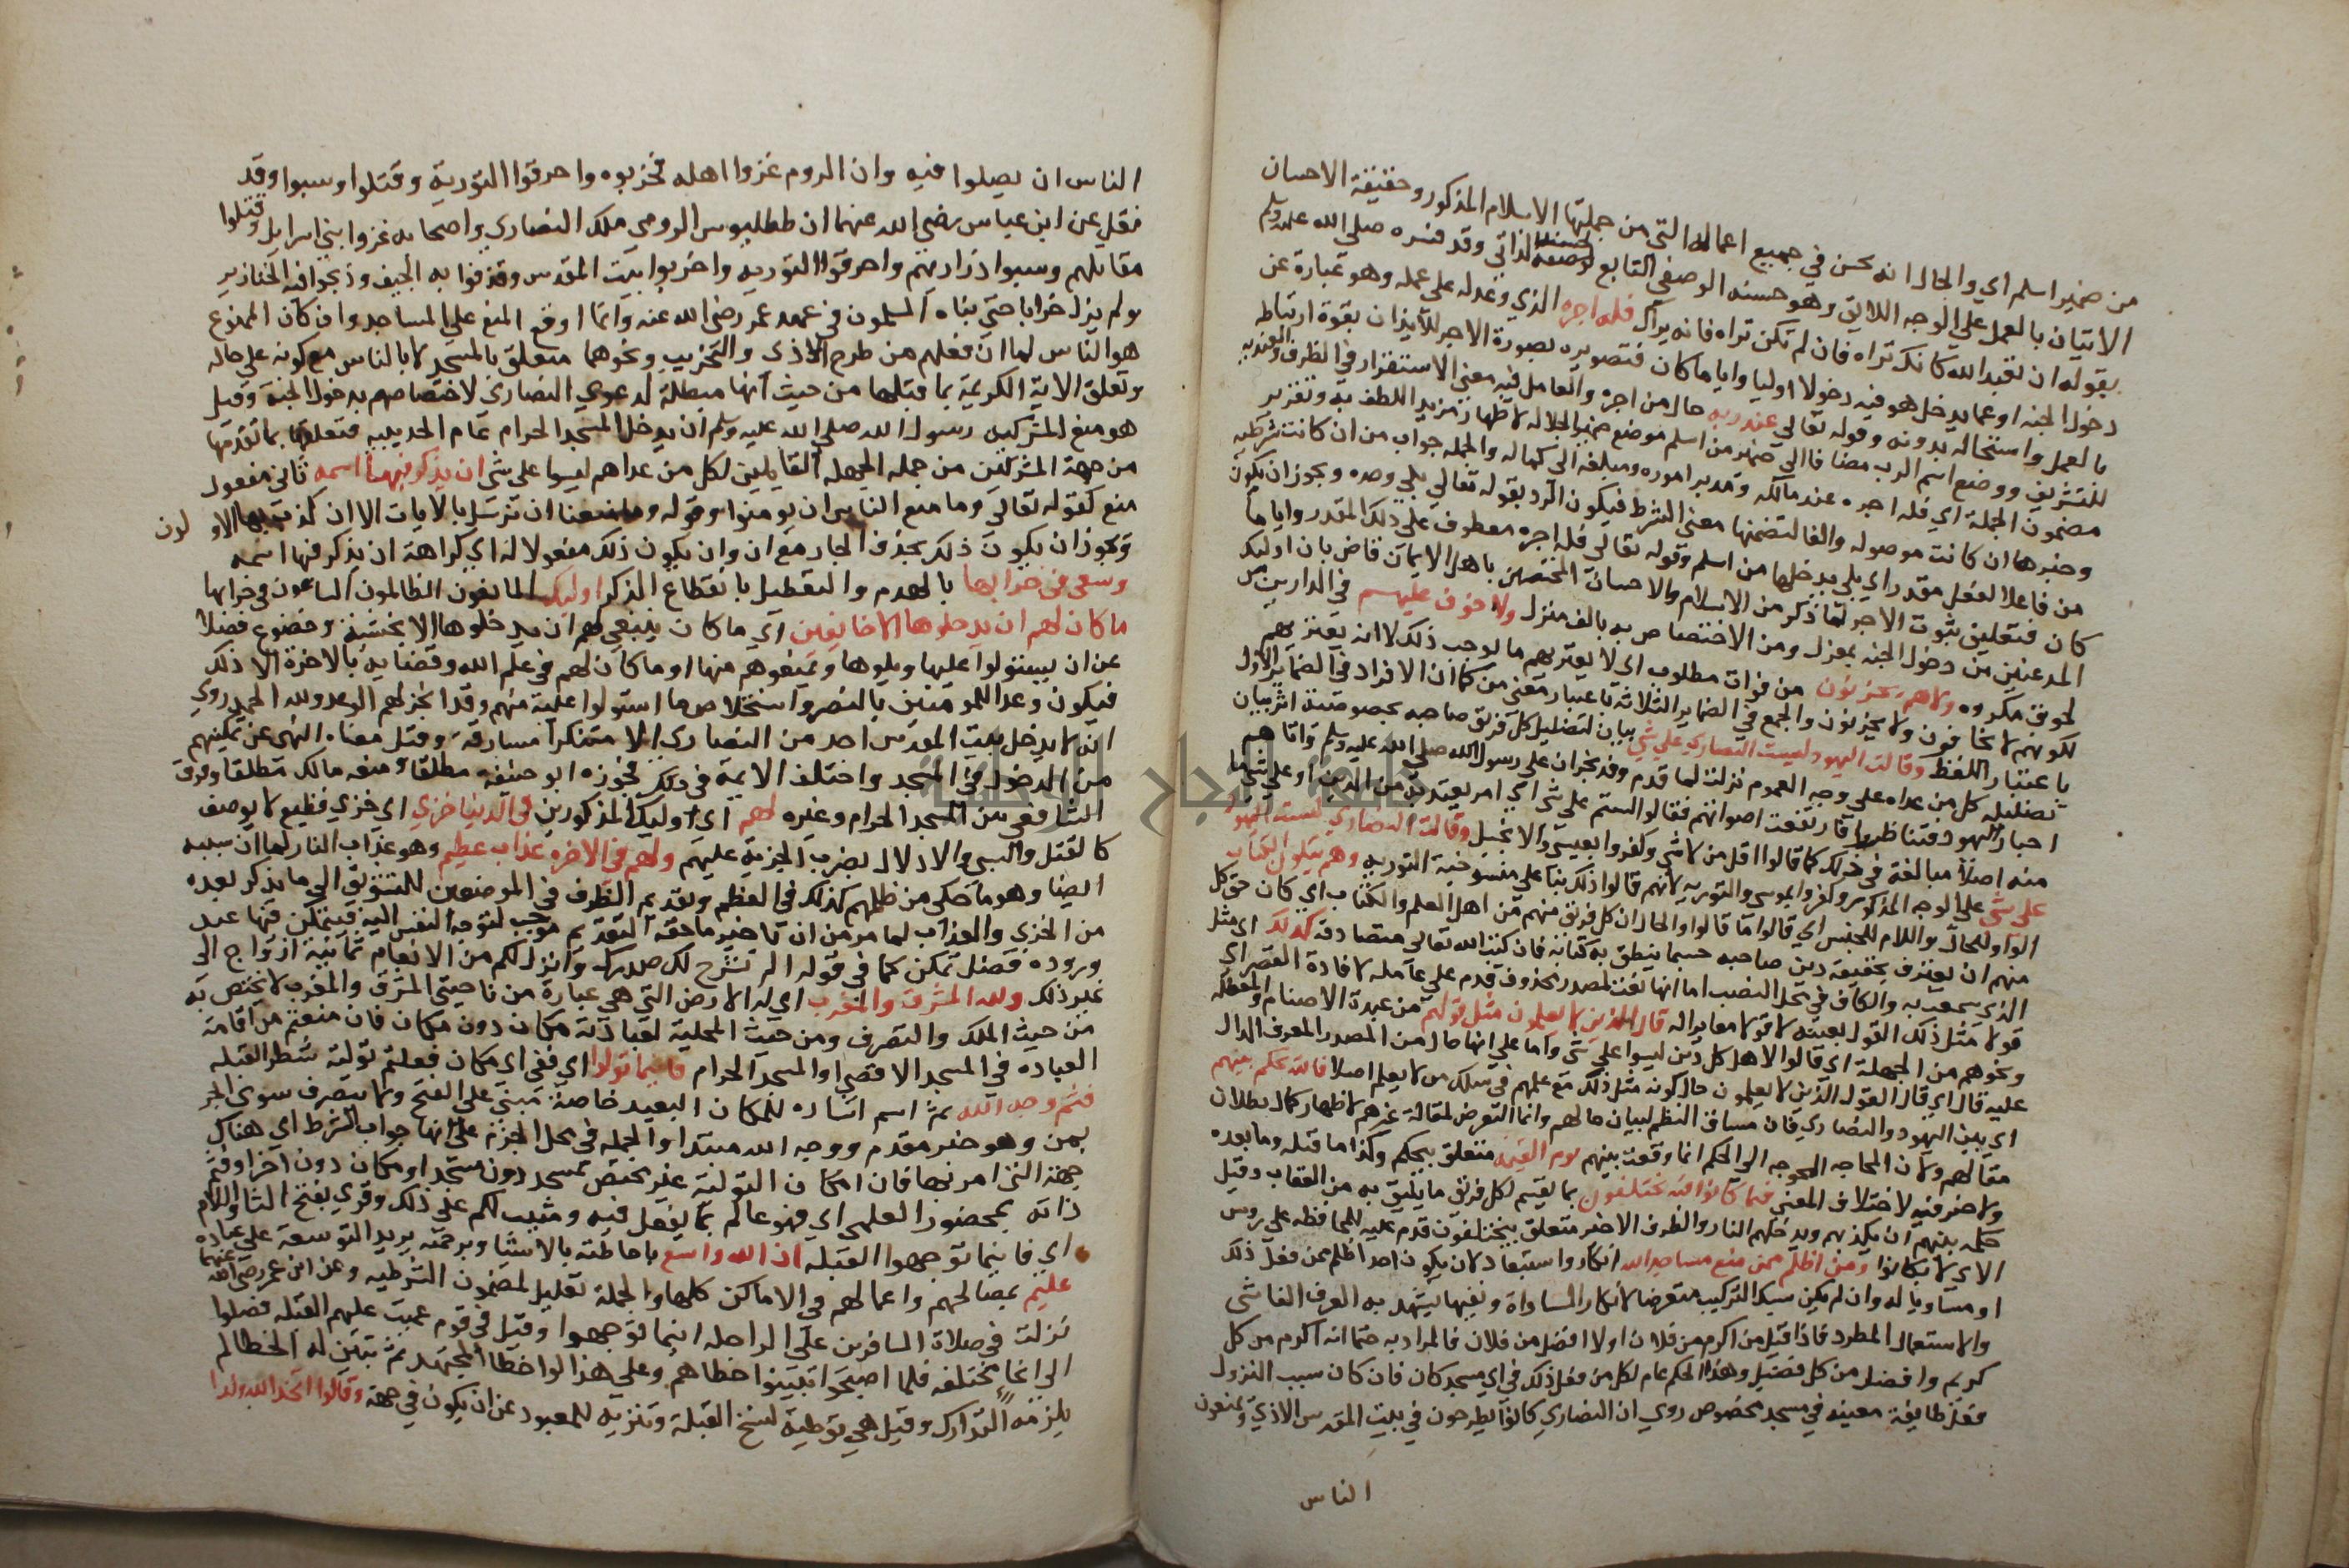 من ضمير اسلم اي والحال انه محسن في جميع اعماله التي من جملتها الاسلام المذكور وحقيقة الاحسان
الاتيان بالعمل علي الوجه اللائق وهو حسنه الوصفي التابع لحسنه الذاتي وقد فسره صلي الله عليه وسلم
بقوله ان تعبد الله كانك تراه فان لم تكن تراه فانه يراك فله اجره الذي وعد له علي عمله وهو عبارة عن
دخول الجنه او عما يدخل هو فيه دخولا اوليا واياما كان فتصويره بصورة الاجر للايذان بقوة ارتباطه
بالعمل واستحاله بدونه وقوله تعالي عند ربه حال من اجره والعامل فيه معني الاستقرار في الظرف والعنديه
للتشريف ووضع اسم الرب مضافا الي ضمير من اسلم موضع ضمير الجلاله لاظهار مزيد اللطف به وتقرير
مضمون الجملة اي فله اجره عند مالكه ومدبر اموره ومبلغه الي كماله والجمله جواب من ان كانت شرطيه
وخبرها ان كانت موصوله والفا لتضمنها معني الشرط فيكون الرد بقوله تعالي بلي وحده ويجوز ان يكون
من فاعلا لفعل مقدر اي بلي يدخلها من اسلم وقوله تعالي فله اجره معطوف علي ذلك المقدر واياما
كان فتعليق ثبوت الاجر لما ذكر من الاسلام والاحسان المختصين باهل الايمان قاض بان اوليك
المدعين من دخول الجنه بمعزل ومن الاختصاص به بالف منزل ولا خوف عليهم في الدارين من
لحوق مكروه ولا هم يحزنون من فوات مطلوب اي لا يعتريهم ما يوجب ذلك لا انه يعتريهم
لكونهم لا يخافون ولا يحزنون والجمع في الضماير الثلاثة باعتبار معني من كما ان الافراد في الضماير الاول
باعتبار اللفظ وقالت اليهود ليست النصاري علي شي بيان لتضليل كل فريق صاحبه بخصوصه اثر بيان
تضليله كل من عداه علي وجه العموم نزلت لما قدم وفد نجران علي رسول الله صلي الله عليه وسلم واتاهم
احبار اليهود فتناظروا فارتفعت اصواتهم فقالوا لستم علي شي اي امر يعتد به من الدين او علي شي ما
منه اصلا مبالغة في ذلك كما قالوا اقل من لا شي وكفروا بعيسي والانجيل وقالت النصاري ليست اليهود
علي شي علي الوجه المذكور وكفروا بموسي والتوريه لانهم قالوا ذلك بنا علي منسوخية التوريه وهم يتلون الكتاب
الواو للحال واللام للجنس اي قالوا ما قالوا والحال ان كل فريق منهم من اهل العلم والكتاب اي كان حق كل
منهم ان يعترف بحقيقة دين صاحبه حسبما ينطق به كتابه فان كتب الله تعالي متصادقه كذلك اي مثل
الذي سمعت به والكاف في محل النصب اما انها نعت لمصدر محذوف قدم علي عامله لافادة القصر اي
قولا مثل ذلك القول بعينه لا قولا مغايرا له قال الذين لا يعلمون مثل قولهم من عبدة الاصنام والمعطله
ونحوهم من الجهلة اي قالوا لاهل كل دين ليسوا علي شي واما علي انها حال من المصدر المعرف الدال
عليه قال اي قال القول الذين لا يعلمون حال كونه مثل ذلك مع علمهم في سلك من لا يعلم اصلا فالله يحكم بينهم
اي بين اليهود والنصاري فان مساق النظم لبيان حالهم وانما التعرض لمقالة غيرهم لاظهار كمال بطلان
مقالهم ولان المحاجه المحوجه الي الحكم انما وقعت بينهم يوم القيمه متعلق بيحكم وكذا ما قبله وما بعده
ولا ضير فيه لاختلاف المعني فيما كانوا فيه يختلفون بما يقسم لكل فريق ما يليق به من العقاب وقيل
حكمه بينهم ان يكذبهم ويدخلهم النار والظرف الاخير متعلق بيختلفون قدم عليه للمحافظه علي روس
الاي لا بكانوا ومن اظلم ممن منع مساجد الله انكار واستبعاد لان يكون احد اظلم ممن فعل ذلك
او مساويا له وان لم يكن سبك التركيب متعرضا لانكار المساواة ونفيها يشهد به العرف الفاشي
والاستعمال المطرد فاذا قيل من اكرم من فلان او لا افضل من فلان فالمراد به حتما انه اكرم من كل
كريم وافضل من كل فضيل وهذا الحكم عام لكل من فعل ذلك في اي مسجد كان فان كان سبب النزول
فعل طايفة معينه في مسجد مخصوص روي ان النصاري كانوا يطرحون في بيت المقدس الاذي ويمنعون
الناس
الناس ان يصلوا فيه وان الروم غزوا اهله فخربوه واحرقوا التورية وقتلوا وسبوا وقد
نقل عن ابن عباس رضي الله عنهما ان ططليوس الرومي ملك النصاري واصحابه غزوا بني اسرايل وقتلوا
مقاتلهم وسبوا ذراريهم واحرقوا التوريه واخربوا بيت المقدس وقذفوا به الجيف وذبحوا فيه الخنازير
ولم يزل خرابا حتي بناه المسلمون في عهد عمر رضي الله عنه وانما اوقع المنع علي المساجد وان كان الممنوع
هو الناس لما ان فعلهم من طرح الاذي والتخريب ونحوهما متعلق بالمسجد لا بالناس مع كونه علي حاله
وتعلق الاية الكريمة بما قبلها من حيث انها مبطلة لدعوي النصاري لاختصاصهم بدخول الجنة وقيل
هو منع المشركين رسول الله صلي الله عليه وسلم ان يدخل المسجد الحرام عام الحديبيه فتعلقها بما تقدمها
من جهة المشركين من جمله الجهله القايلين لكل من عداهم ليسوا علي شي ان يذكر فيها اسمه ثاني مفعول
منع كقوله تعالي وما منع الناس ان يومنوا وقوله وما منعنا ان نرسل بالايات الا ان كذب بها الاولون
ويجوز ان يكون ذلك بحذف الجار مع ان وان يكون ذلك مفعولا له اي كراهة ان يذكر فيها اسمه
وسعي في خرابها بالهدم والتعطيل بانقطاع الذكر اوليك المانعون الظالمون الساعون في خرابها
ما كان لهم ان يدخلوها الا خايفين اي ما كان ينبغي لهم ان يدخلوها الا بخشية وخضوع فضلا
عن ان يستولوا عليها ويلوها ويمنعوهم منها او ما كان لهم في علم الله وقضايه بالاخرة الا ذلك
فيكون وعدا للمومنين بالنصر واستخلاص ما استولوا عليه منهم وقد انجز لهم الوعد ولله الحمد روي
انه لا يدخل بيت المقدس احد من النصاري الا متنكرا مسارقة وقيل معناه النهي عن تمكينهم
من الدخول في المسجد واختلف الايمة في ذلك فجوزه ابو حنيفه مطلقا ومنعه مالك مطلقا وفرق
الشافعي بين المسجد الحرام وغيره لهم اي اوليك المذكورين في الدنيا خزي اي خزي فظيع لا يوصف
كالقتل والسبي والاذلال بضرب الجزية عليهم ولهم في الاخره عذاب عظيم وهو عذاب النار لما ان سببه
ايضا وهو ما حكي من ظلمهم كذلك في العظم وتقديم الظرف في الموضعين للتشويق الي ما يذكر بعده
من الخزي والعذاب لما مر من ان تاخير ما حقه التقديم موجب لتوجه النفس اليه فيتمكن فيها عند
وروده فضل تمكن كما في قوله الم نشرح لك صدرك وانزل لكم من الانعام ثمانية ازواج الي
غير ذلك ولله المشرق والمغرب اي له الارض التي هي عبارة من ناحيتي المشرق والمغرب لا يختص به
من حيث الملك والتصرف ومن حيث المحلية لعبادته مكان دون مكان فان منعتم من اقامة
العباده في المسجد الاقصي او المسجد الحرام فاينما تولوا اي ففي اي مكان فعلتم تولية شطر القبله
فثم وجه الله ثم اسم اشاره للمكان البعيد خاصة مبني علي الفتح ولا يتصرف سوي الجر
بمن وهو خبر مقدم ووجه الله مبتدا والجمله في محل الجزم علي انها جواب الشرط اي هناك
جهته التي امر بها فان امكان التولية غير مختص بمسجد دون مسجد او مكان دون اخر او فثم
ذاته بمحضور العلمي اي فهو عالم بما يفعل فيه ومثيب لكم علي ذلك وقري بفتح التا واللام
اي فاينما توجهوا القبله ان الله واسع باحاطته بالاشيا وبرحمته يريد التوسعة علي عباده
عليم بمصالحهم واعمالهم في الاماكن كلها والجملة تعليل لمضمون الشرطيه وعن ابن عمر رضي الله عنهما
نزلت في صلاة المسافرين علي الراحله اينما توجهوا وقيل في قوم عميت عليهم القبله فصلوا
الي انحا مختلفه فلما اصبحوا تبينوا خطاهم وعلي هذا لو اخطا المجتهد ثم تبين له الخطا لم
يلزمه التدارك وقيل هي توطية لنسخ القبلة وتنزيه للمعبود عن ان يكون في جهة وقالوا اتخذ الله ولدا